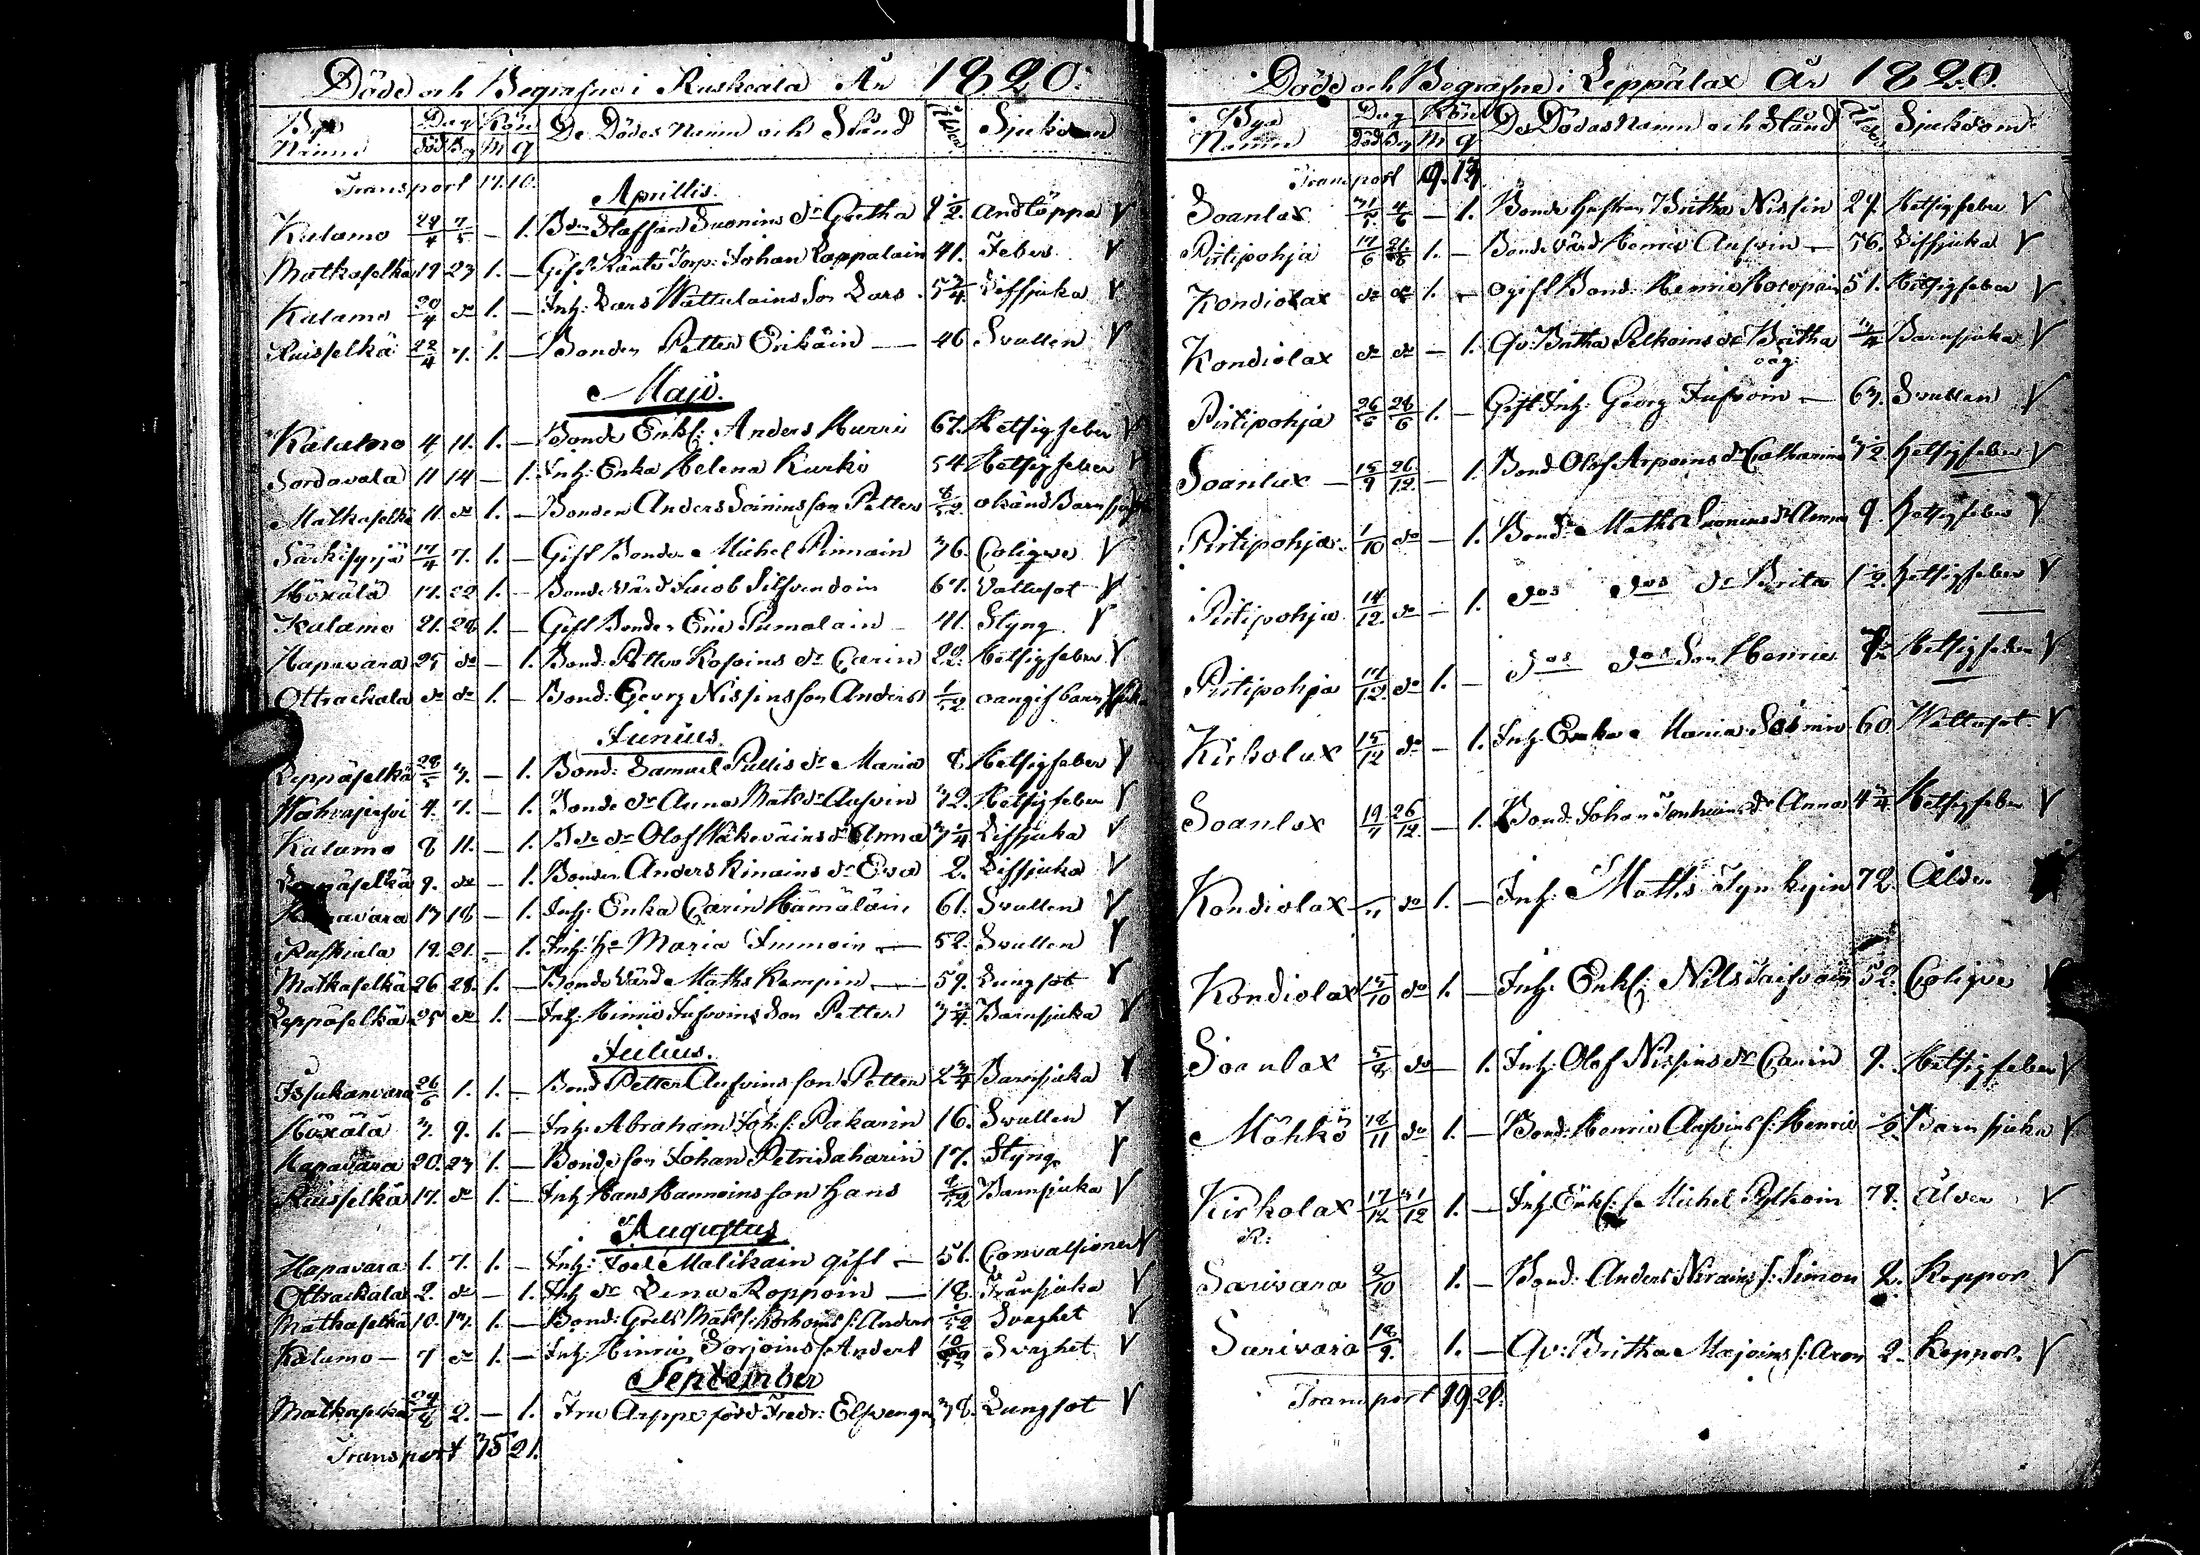 Döde och Begrafne i Ruskeala År 1820.
Bys Namn Dag Kön De Dödes Namn och Stånd Ålder Sjukdom
död Beg M q
Transport 17. 10.
Aprillis.
Kalamo 29/4 7/5 — 1. Bdn Staffan Suonins dr Gretha 9 1/2. Andtäppa V
Matkaselkä 19 23 1. — Gift Johan Lappalain 41. Feber V
Kalamo 20/4 do 1. — Inh: Lars Wattulains Son Lars 5 3/4 V
Ruisselkä 22/4 7. 1. — Bonden Petter Erikäin — 46 Svullen V
Maji.
Kalamo 4 11. 1. — Bonde Enkl: Anders Hurri 67. Hetsig feber V
Sordavala 11 14 — 1. Inh: Enka Helena Kurki 54 Hetsigfeber V
Matkaselkä 11 do 1. — Bonden Anders Soinins son Petter 8/52 okänd Barnsjuka
17/4 7. 1. — Gift Bonde Michel Pinnain 36. Coliqve V
Höxälä 17. 22 1. — Bonde Värd Jacob Silfvendoin 67. Vattusot V
Kalamo 21. 28 1. — Gift Bonde Eric Pumalain — 41. Styng V
Hapavara 25 do — 1. Bond: Petter Kosoins dr Carin 22. Hetsigfeber V
Ottrackala do do 1. — Bond: Georg Nissins son Anders 1/52 oangif barnsjuka
Junius.
Leppäselkä 28/5 3. — 1. Bond: Samuel Pullis dr Maria 8 Hetsigfeber V
4. 7. — 1. Bonde dr Anna Mats dr Aufvin 72. Hetsigfeber V
Kalamo 8 11. — 1. Bde dr Olof Näkeväins dr Anna 3 1/4 V
Leppäselkä 9. do — 1. Bonden Anders Kinains dr Eva 2. V
Hapavara 13 18 — 1. Inh: Enka Carin Hämäläin 61. Svullen V
Ruskiala 19. 21. — 1. Inh: Hu Maria Immoin — 52. Svullen V
Matkaselkä 26 28. 1. — Bonde Värd Maths Kempin — 59. Lungsot V
Leppäselkä 25 do 1. — Inh: Hinric Jufvoins Son Petter 3 3/4. Barnsjuka V
Julius.
Issukanvara 26/6 1. 1. — Bond Petter Aufvins son Petter 2 3/4 Barnsjuka V
Höxälä 3. 9. 1. — Inh: Abraham Joh: s: Pakarin 16. Svullen V
Hapavara 20. 23 1. — Bonde son Johan Petri Saharin 17. Styng V
Ruisselkä 17. do 1. — Inh Hans Hannoins son Hans 9/52 Barnsjuka V
Augustus
Hapavara 1. 7. 1. — Inh: Joel Malikain gift — 51. Convulsioner V
Ottrackala 2. do — 1. Inh dr Lena Roppoin — 18. Tränsjuka V
Matkaselkä 10. 13. 1. — Bond: Grels Mats s: Korhoins s: Anders 1/52 Svaghet V
Kalamo — 7 do 1. — Inh: Hinric Sorjoins s: Anders 10/52 Svaghet V
September
Matkaselkä 29/8 2. — 1. Fru Arppe född Fredr: Elfvengren 38. Lungsot V
Transport 35 21.
Döde och Begrafne i Leppälax År 1820.
Bya Namn Dag Kön De Dödas Namn och Stånd Ålder Sjukdom
död Beg M q
Transport 9. 13.
Soanlax 31/5 4/6 — 1. Bonde hustru Britha Nissin 29. Hetsigfeber V
Pirtipohja 17/6 21/6 1. — Bonde Värd Henric Aufvin — 56. V
Kondiolax do do 1. — ogift Bond: Henric Hacopain 51. Hetsigfeber V
Kondiolax do do — 1. Qv: Britha Pelkoins dr Britha oäg: 3/4 Barnsjuka V
Pirtipohja 26/6 28/6 1. — Gift Inh: Georg Jufvoin — 63. Svullen V
Soanlax — 15/9 26/12 — 1. Bond Olof Arpoins dr Catharina 3 1/2. Hetsigfeber V
Pirtipohja 1/10 do — 1. Bond: Maths Suonins dr Anna 9. Hetsigfeber V
Pirtipohja 14/12 do — 1. dos dos dr Brita 1 1/2. Hetsigfeber V
Pirtipohja 14/12 do 1. — dos dos Son Henric Hetsigfeber V
Kirkolax 15/12 do — 1. Inh: Enka Maria Soinin 60 Wattusot V
Soanlax 19/7 26/12 — 1. Bond: Johan dr Anna 4 3/4 Hetsigfeber V
Kondiolax 11 do 1. — Inh: Maths Tynkyin 72. Ålder
Kondiolax 17/10 do 1. — Inh: Enkl: Nils 52. Coliqve V
Soanlax 5/8 do — 1. Inh: Olof Nissins dr Carin 9. Hetsigfeber V
Möhkö 18/11 do 1. — Bond: Henric Aufvins s: Henric 1/2 Barnsjuka V
Kirkolax 17/12 31/12 1. — Inh Enkl: Michel Pylkoin 78. Ålder V
R:
Sarivara 2/10 1. — Bond: Anders Hirains s: Simon 2. Koppor V
Sarivara 18/9. 1. — Qv: Britha Majoins s: Aron 2. Koppor. V
Transport 19 21.